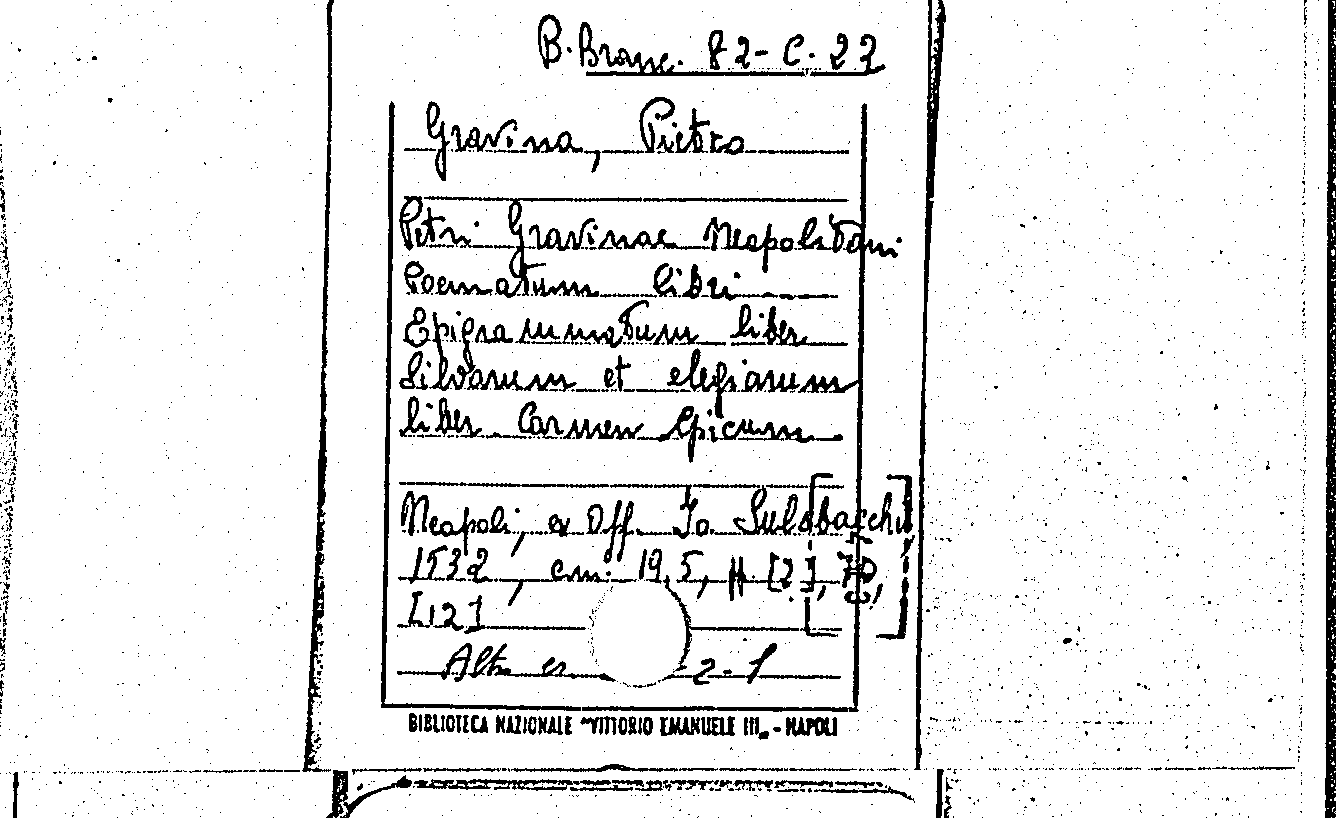 B. Branc. 82-C. 22
Gravina, Pietro
Petri Gravinae Neapolitani
Poematum libri
Epigrammatum liber
Silvarum et elegiarum
liber Carmen Epicum
Neapoli, ex Off. Jo Sulsbacchii
1532, cm. 19,5, ff. [2], 70,
[12]
Altr. es 2-1
BIBLIOTECA NAZIONALE "VITTORIO EMANUELE III„ - NAPOLI